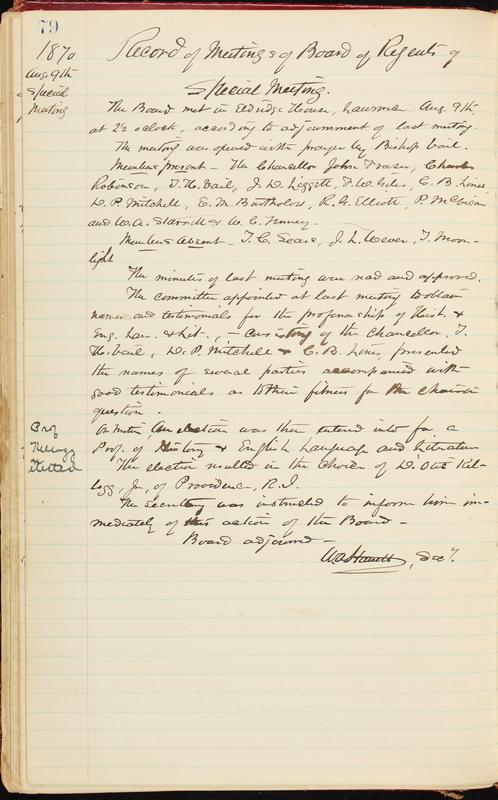 79
1870
Aug. 9th
Special
Meeting
Record of Meetings of Board of Regents of
Special Meeting.
The Board met in Eldridge House, Lawrence, Aug. 9th,
at 2½ o'clock, according to adjournment of last meeting.
The meeting was opened with prayer by Bishop Vail.
Members present – The Chancellor John Fraser, Charles
Robinson, T. H. Vail, J. D. Liggett, F. W. Giles, C. B. Lines
D. P. Mitchell, E. M. Bartholow, R. G. Elliott, P. McVicar
and W. A. Starrett & W. C. Tenney.
Members Absent – T. C. Sears, J. L. Wever, T. Moon-
light
The minutes of last meeting were read and approved.
The committee appointed at last meeting to obtain
names and testimonials for the professorship of Hist. &
Eng. Lan. & Lit., – consisting of the Chancellor, T.
H. Vail, D. P. Mitchell & C. B. Lines, presented
the names of several parties accompanied with
good testimonials as to their fitness for the chair in
question.
Prof
Kellogg
elected
On motion, An election was then entered into for a
Prof. of History & English Language and Literature
The election resulted in the choice of D. Otis Kel-
logg, Jr., of Providence, R.I.
The Secretary was instructed to inform him im-
mediately of this action of the Board –
Board adjourned –
W. A. Starrett, Sec'y.